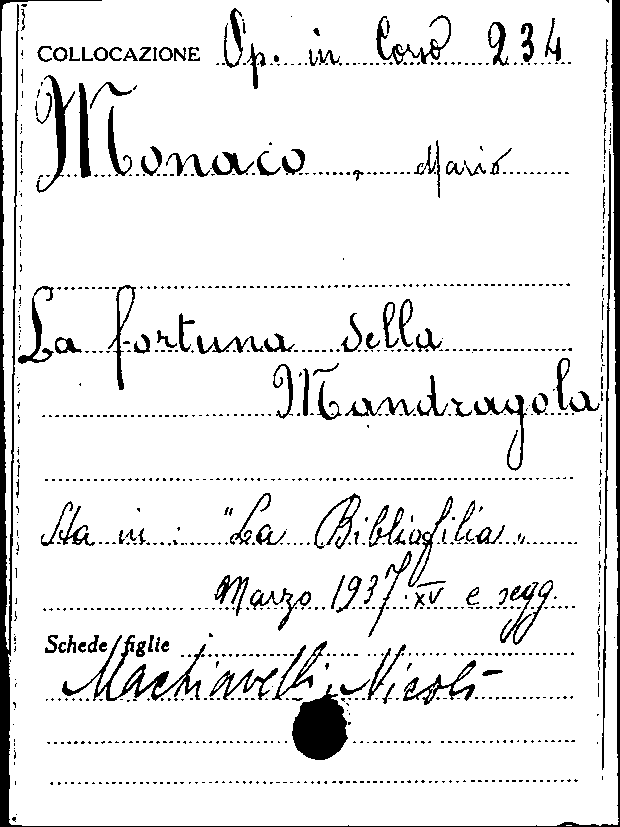 COLLOCAZIONE Op. in Corso 234
Monaco, Mario
La fortuna della
Mandragola
Sta in: "La Bibliofilia„
Marzo 1937. XV e segg.
Schede figlie
Machiavelli, Nicolò